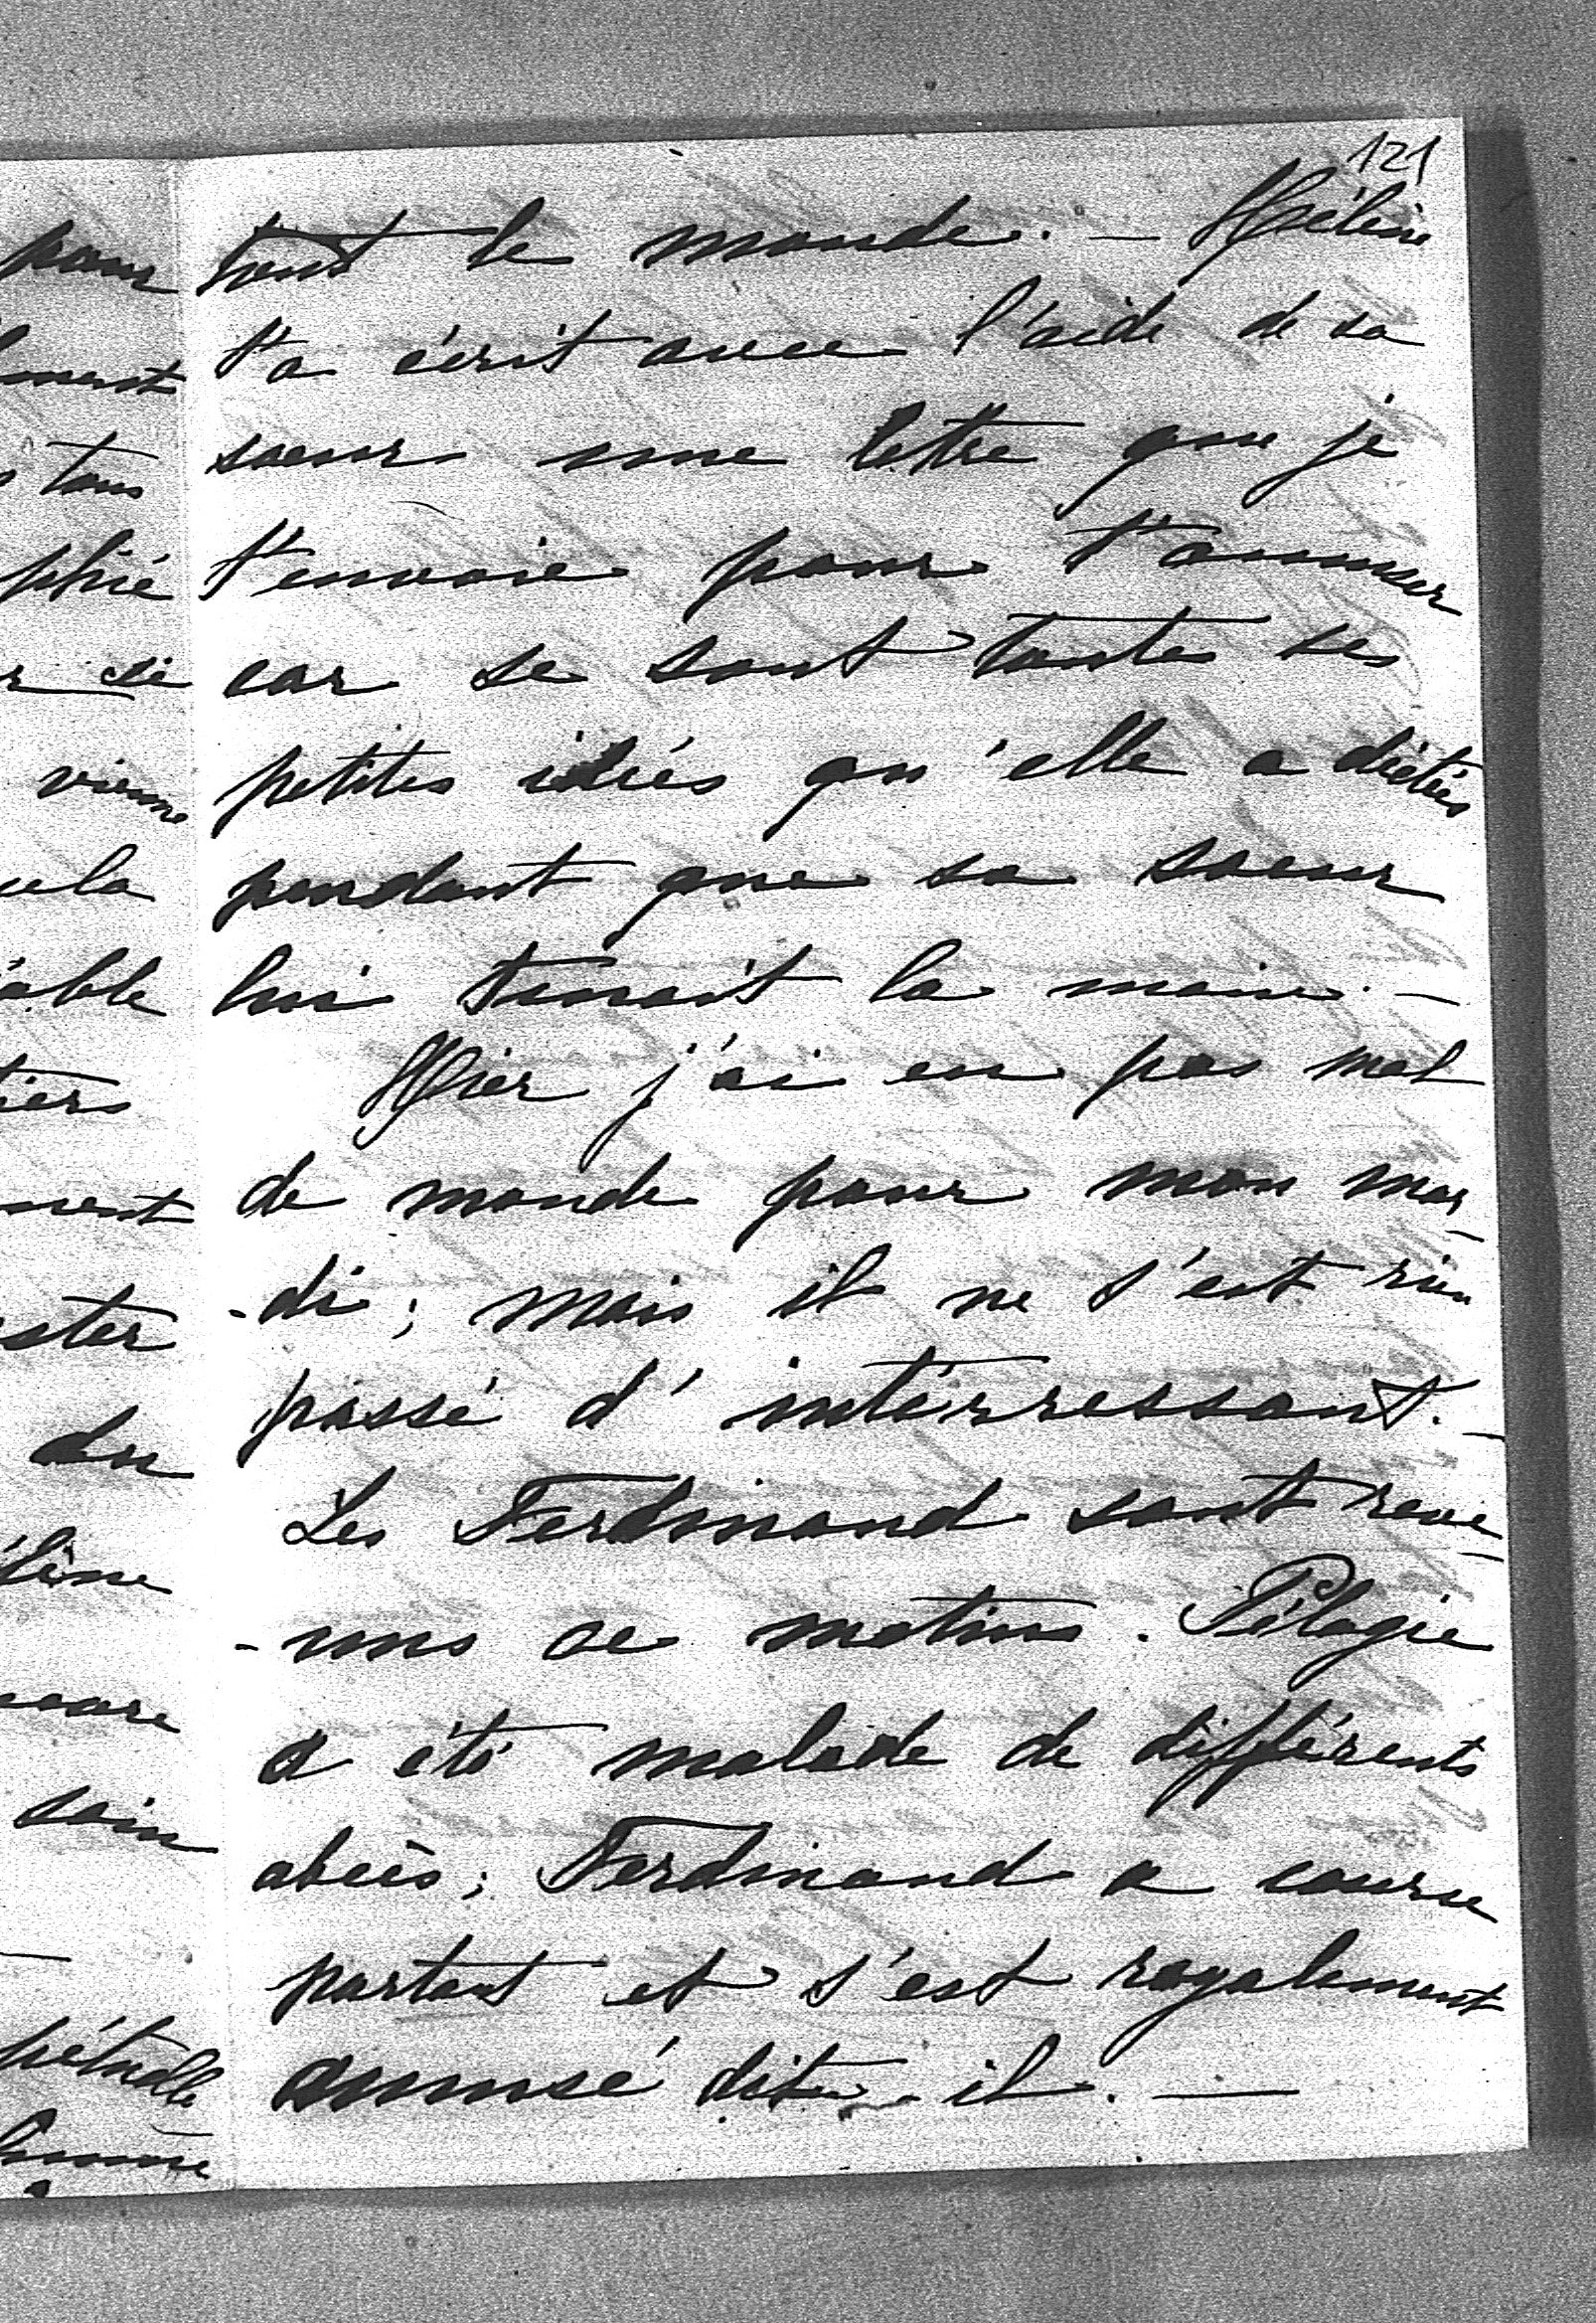 121
tout le monde. — Hélène
t'a écrit avec l'aide de sa
soeur une lettre que je
t'envoie pour t'amuser
car se sont toutes ses
petites idées qu'elle a dictées
pendant que sa soeur
lui tenait la main. —
Hier j'ai eu pas mal
de monde pour mon mar-
-di; mais il ne s'est rien
passé d'intérressant. —
Les Ferdinand sont reve-
-nus ce matin. Pélagie
a été malade de différents
abcès; Ferdinand a couru
partout et s'est royalement
amusé dit-il. —
pour
tous
vienne
cela
du
soin